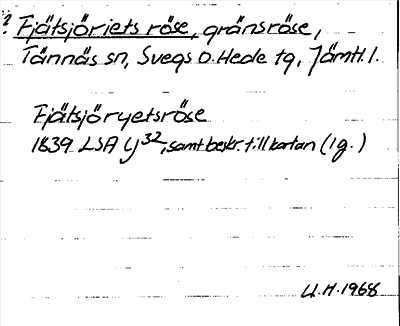 ? Fjätsjöriets röse, gränsröse,
Tännäs sn, Svegs o. Hede tg, Jämtl. l.
Fjätsjöryetsröse
1839 LSA Y32, samt beskr. till kartan (1 g.)
U.H. 1968